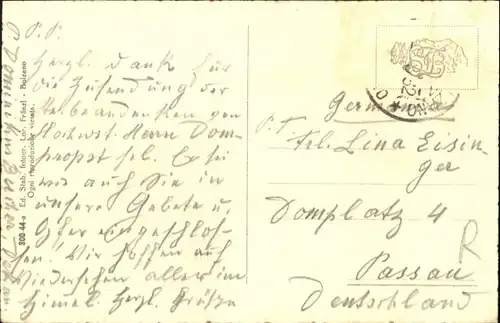 P. P.
Herzl. Dank für
die Zusendung der
Sterbeandenken von
Hochwst. Herrn Dom-
propst sel. Er sei
wie auch Sie in
unsere Gebete u.
Opfer eingeschlos-
sen. Wir hoffen auf
Wiedersehen aller im
Himmel. Herzl. Grüße
300 44-a Ed. Stab. fotogr. Lor. Fränzl - Bolzano
Ogni riproduzione vietata.
Germania
P. T.
Frl. Lina Eisin-
ger
Domplatz 4
Passau
Deutschland
R